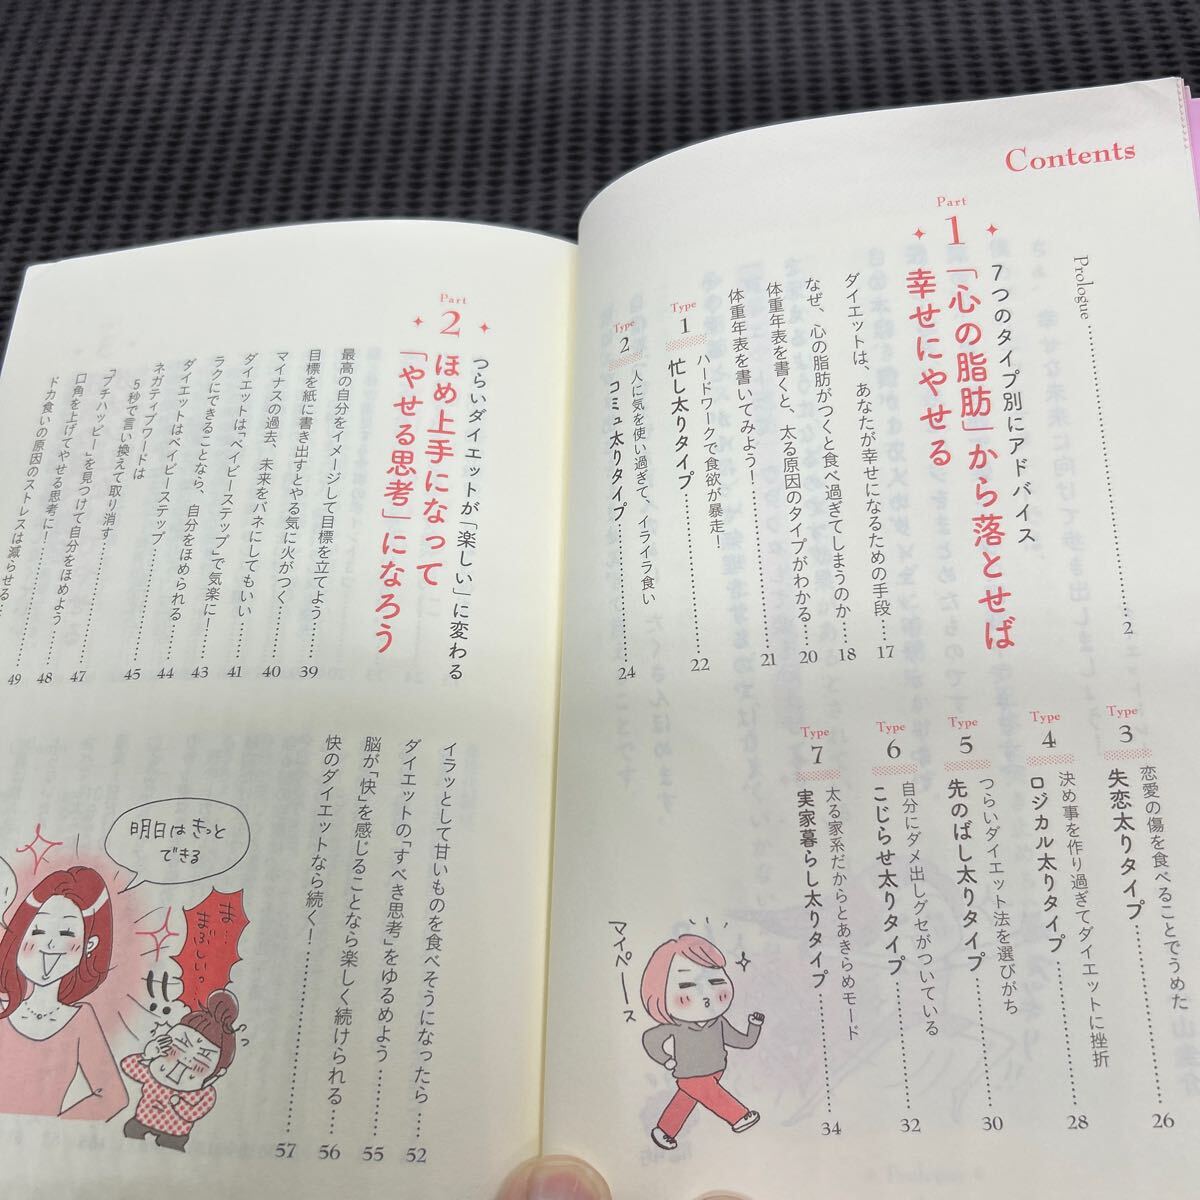 Contents
Prologue……2
Part
1
7つのタイプ別にアドバイス
「心の脂肪」から落とせば
幸せにやせる
ダイエットは、あなたが幸せになるための手段……17
なぜ、心の脂肪がつくと食べ過ぎてしまうのか……18
体重年表を書くと、太る原因のタイプがわかる……20
体重年表を書いてみよう!……21
Type
1
ハードワークで食欲が暴走!
忙し太りタイプ……22
Type
2
人に気を使い過ぎて、イライラ食い
コミュ太りタイプ……24
Type
3
恋愛の傷を食べることでうめた
失恋太りタイプ……26
Type
4
決め事を作り過ぎてダイエットに挫折
ロジカル太りタイプ……28
Type
5
つらいダイエット法を選びがち
先のばし太りタイプ……30
Type
6
自分にダメ出しグセがついている
こじらせ太りタイプ……32
Type
7
太る家系だからとあきらめモード
実家暮らし太りタイプ……34
マイペース
Part
2
つらいダイエットが「楽しい」に変わる
ほめ上手になって
「やせる思考」になろう
最高の自分をイメージして目標を立てよう……39
目標を紙に書き出すとやる気に火がつく……40
マイナスの過去、未来をバネにしてもいい……41
ダイエットは「ベイビーステップ」で気楽にー
ラクにできることなら、自分をほめられる……43
ダイエットはベイビーステップ……44
ネガティブワードは
5秒で言い換えて取り消す……45
「プチハッピー」を見つけて自分をほめよう……47
口角を上げてやせる思考に!……48
ドカ食いの原因のストレスは減らせる……49
イラッとして甘いものを食べそうになったら……52
ダイエットの「すべき思考」をゆるめよう……55
脳が「快」を感じることなら楽しく続けられる……56
快のダイエットなら続く!……57
明日はきっと
できる
ま…
まぶしいっ…
!!